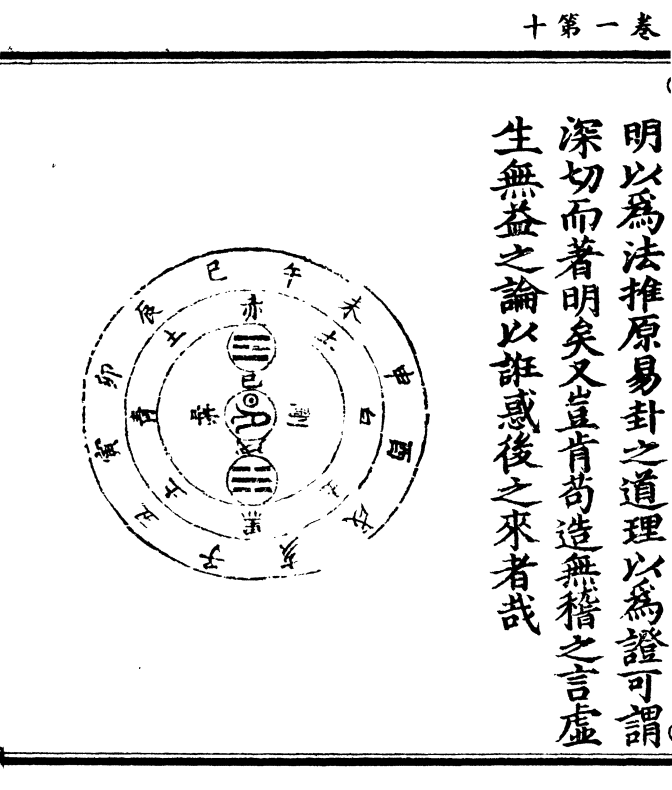 卷一第十
明以爲法推原易卦之道理以爲證可謂
深切而著明矣又豈肯苟造無稽之言虛
生無益之論以誑惑後之來者哉
巳午未申酉戌亥子丑寅卯辰
赤土白土黑土青土
柔
剛
己
戊